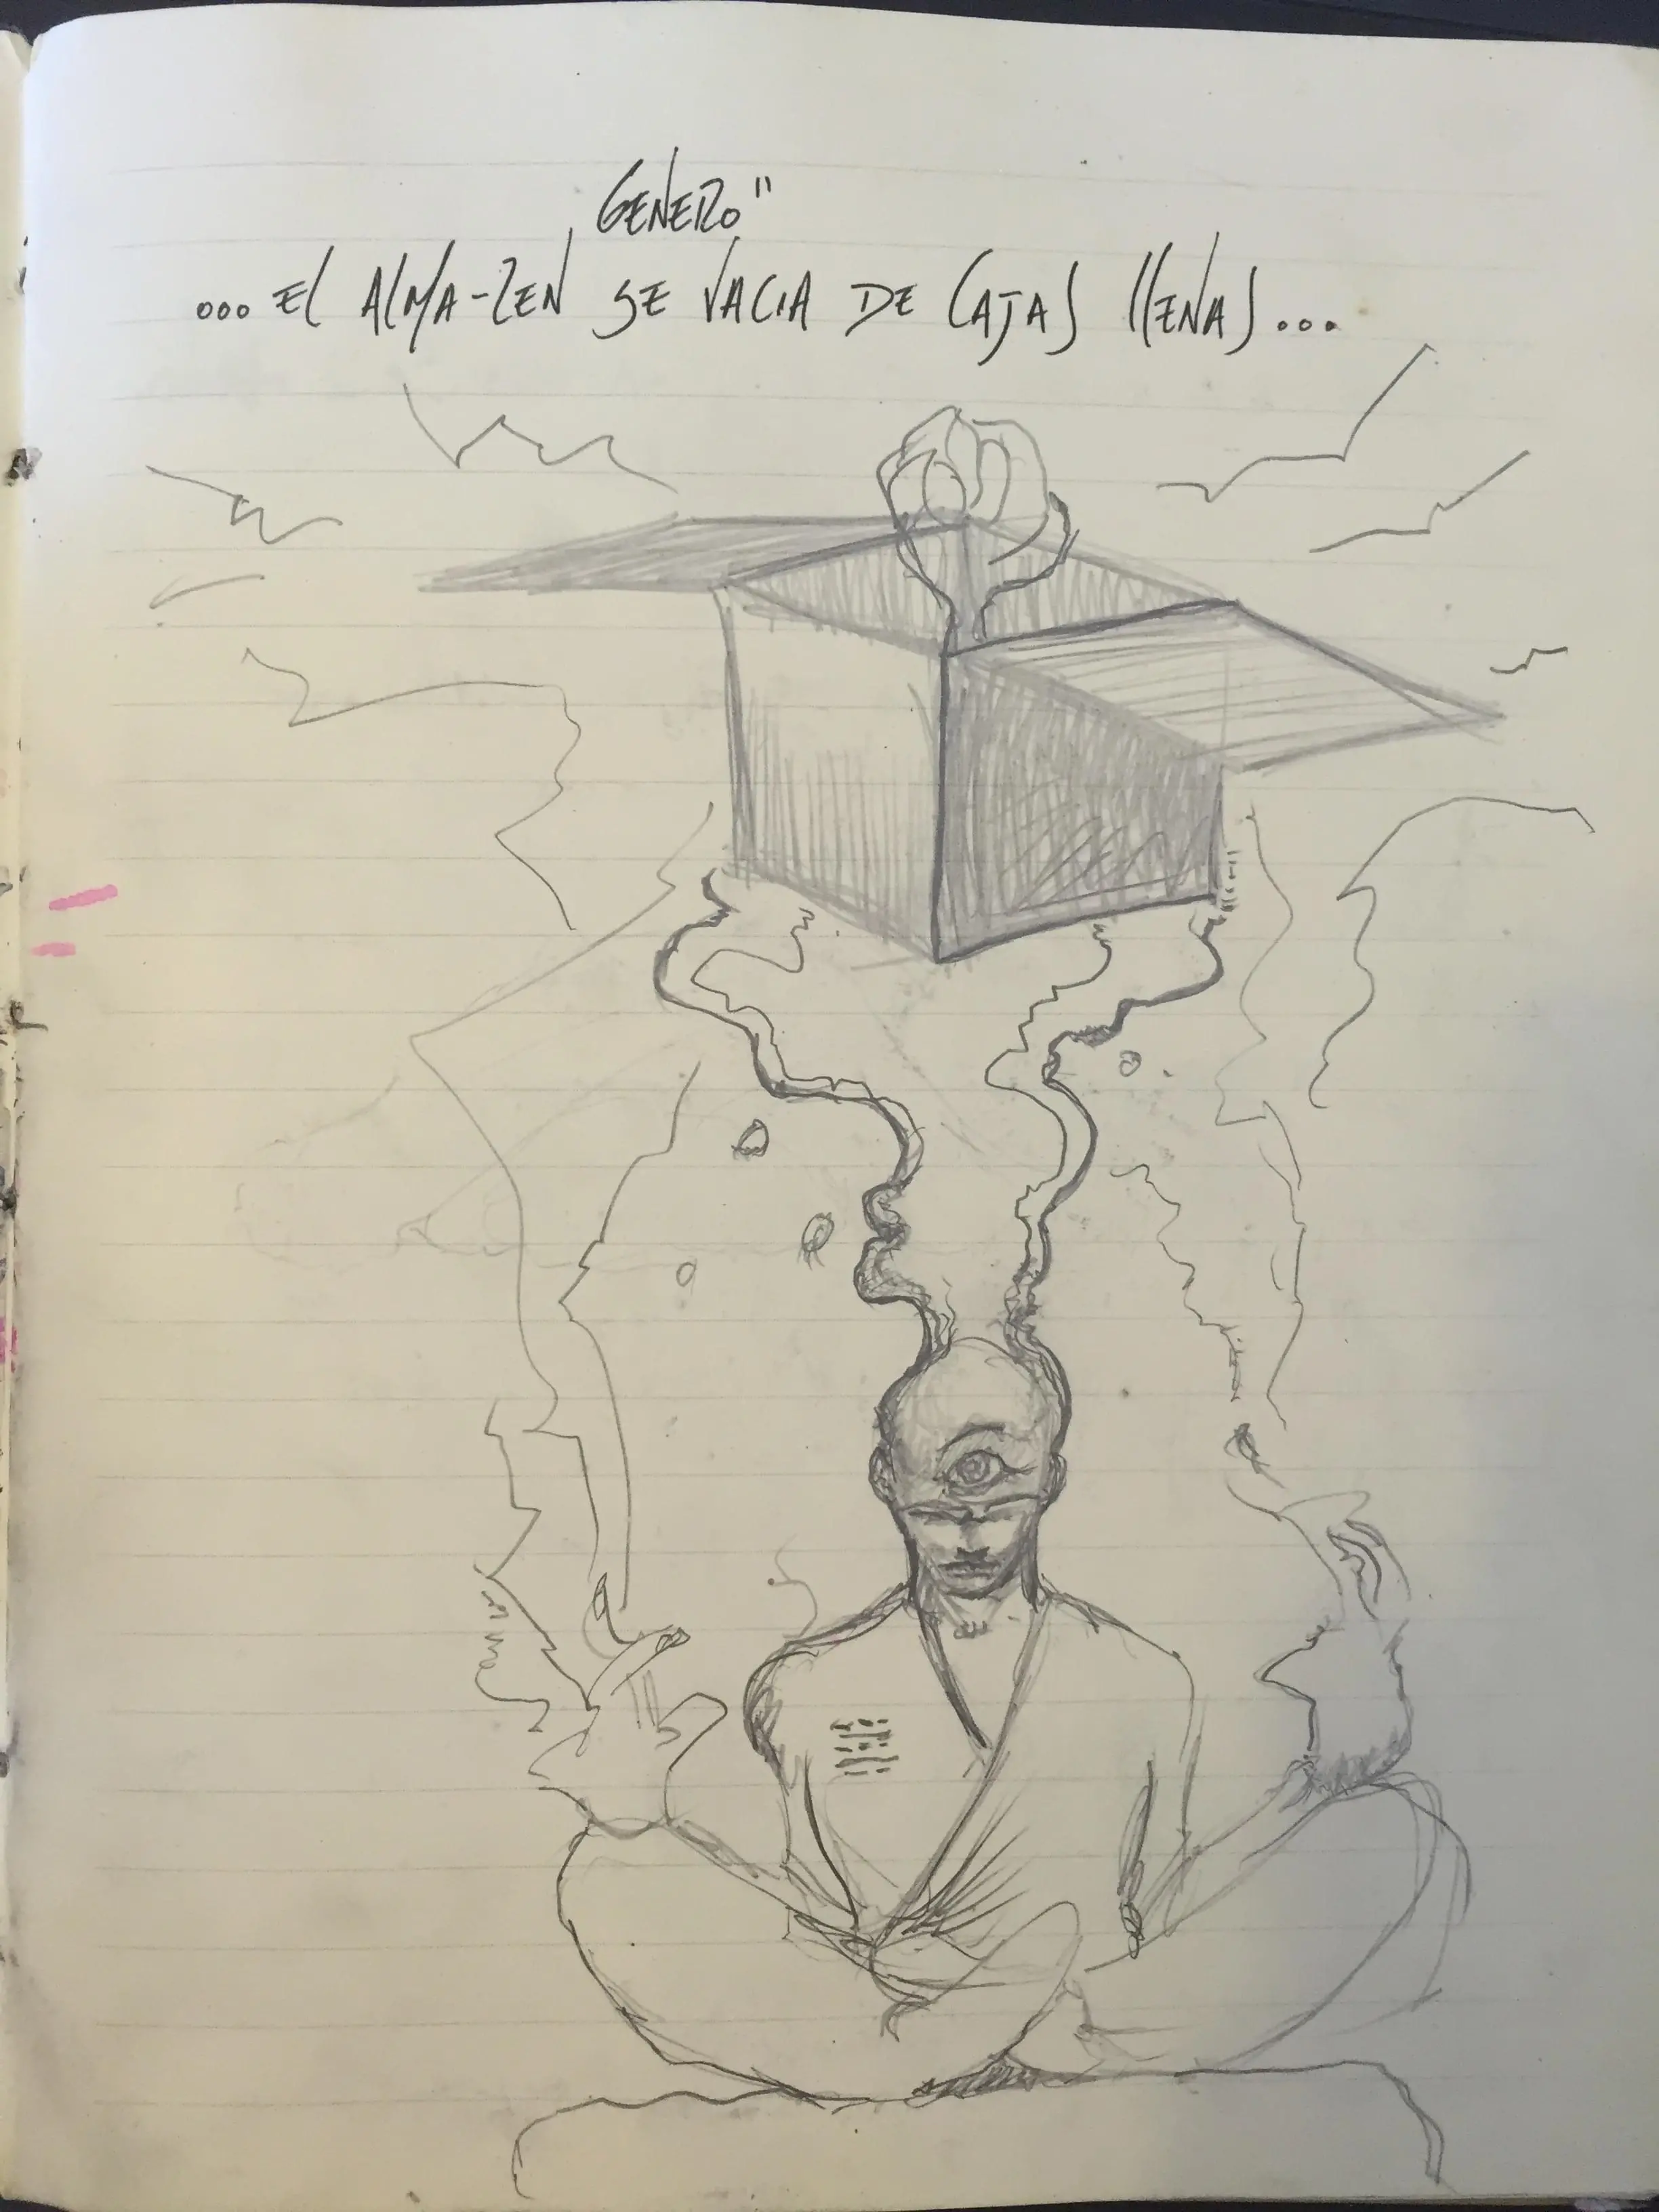 GENERO"
...EL ALMA-ZEN SE VACIA DE CAJAS LLENAS...